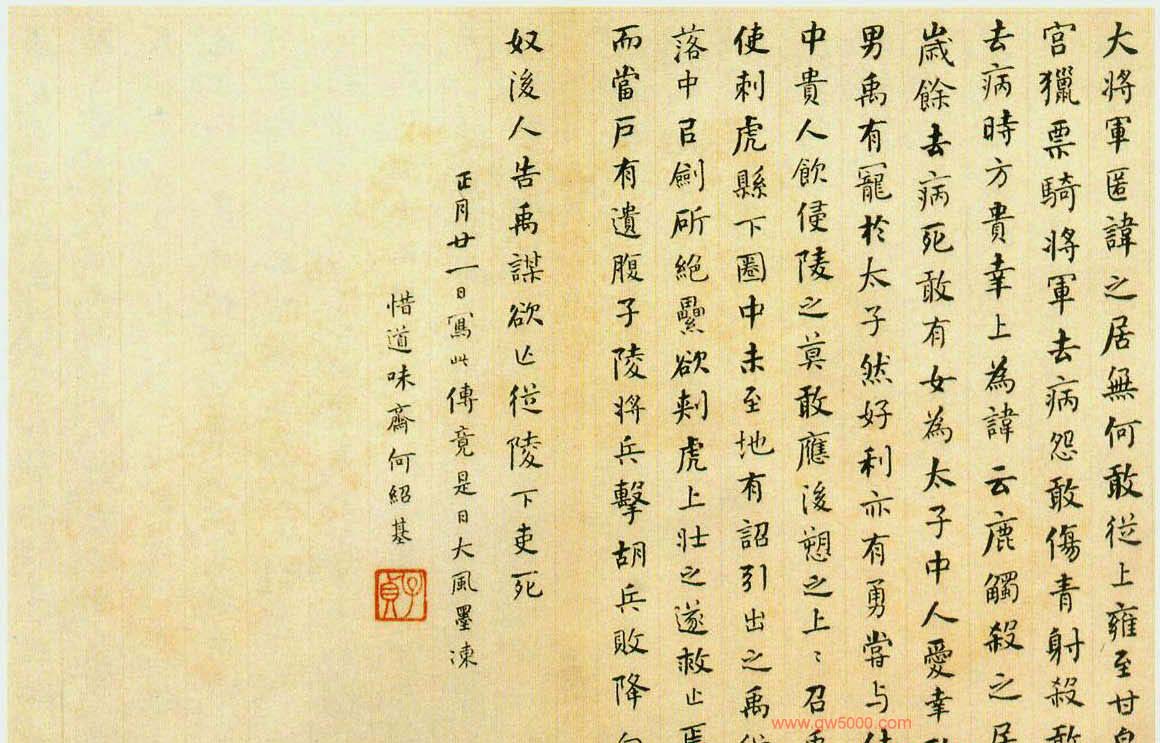 大將軍匿諱之居無何敢從上雍至甘泉
宮獵票騎將軍去病怨敢傷青射殺敢
去病時方貴幸上為諱云鹿觸殺之居
歲餘去病死敢有女為太子中人愛幸敢
男禹有寵於太子然好利亦有勇嘗与侍
中貴人飲侵陵之莫敢應後愬之上〻召禹
使刺虎縣下圈中未至地有詔引出之禹從
落中㠯劍斫絕纍欲刺虎上壯之遂救止焉
而當戶有遺腹子陵將兵擊胡兵敗降匈
奴後人告禹謀欲亡從陵下吏死
正月廿一日寫此傳竟是日大風墨凍
惜道味齋何紹基
子貞
www.gw5000.com